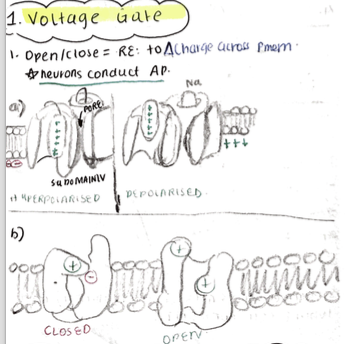 1. Voltage Gate
1. Open/close = RE: to Δ Charge across Pmem.
☆ neurons conduct AP.
a)
PORE
Na
+++
SUDOMAIN IV
HYPERPOLARISED
DEPOLARISED
b)
CLOSED
OPEN